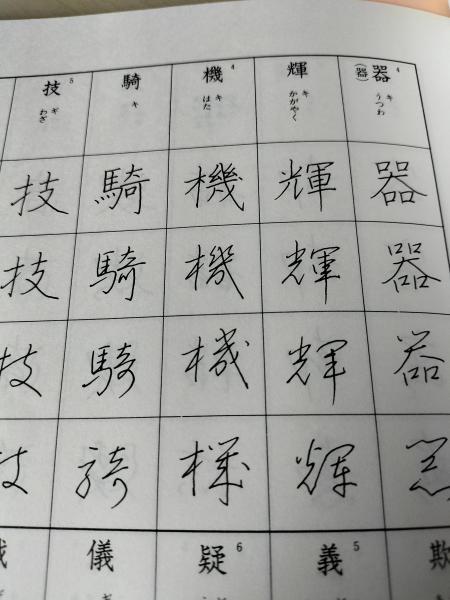 器 4
(器)
キ
うつわ
器
器
器
器
輝
キ
かがやく
輝
輝
輝
輝
機 4
キ
はた
機
機
機
機
騎
キ
騎
騎
騎
騎
技 5
ギ
わざ
技
技
技
技
欺
義 5
疑 6
儀